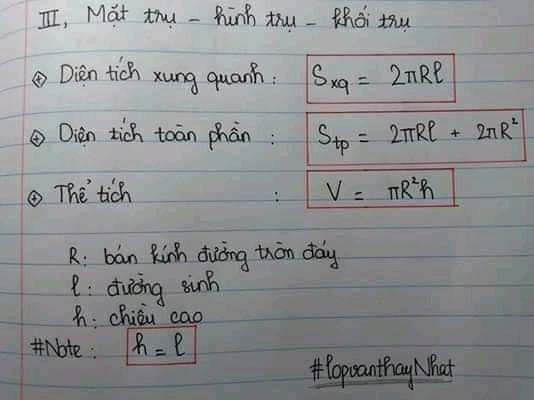 III, Mặt trụ - hình trụ - khối trụ
Diện tích xung quanh: Sxq = 2πRl
Diện tích toàn phần : Stp = 2πRl + 2πR²
Thể tích : V = πR²h
R: bán kính đường tròn đáy
l: đường sinh
h: chiều cao
#Note: h = l
#lopvanthayNhat